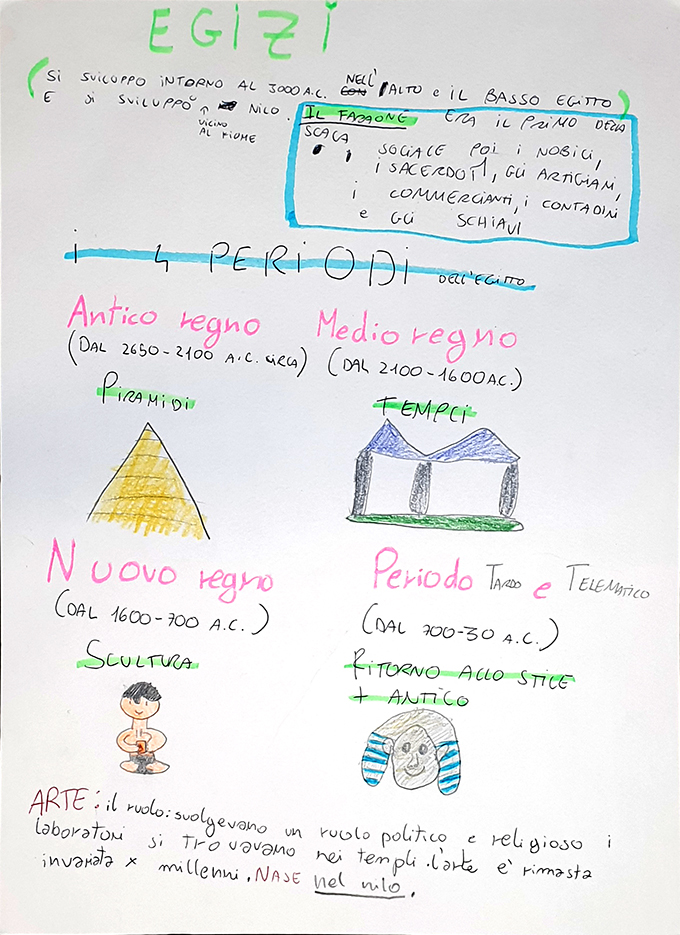 EGIZI
(SI SVILUPPÒ INTORNO AL 3000 A.C. NELL' ALTO e IL BASSO EGITTO)
E SI SVILUPPÒ VICINO AL FIUME NILO.
IL FARAONE ERA IL PRIMO DELLA
SCALA
SOCIALE POI I NOBILI,
I SACERDOTI, GLI ARTIGIANI,
I COMMERCIANTI, I CONTADINI
e GLI SCHIAVI
i 4 PERIODI DELL'EGITTO
Antico regno
(DAL 2650-2100 A.C. CIRCA)
PIRAMIDI
Medio regno
(DAL 2100-1600 A.C.)
TEMPLI
Nuovo regno
(DAL 1600-700 A.C.)
SCULTURA
Periodo TARDO e TELEMATICO
(DAL 700-30 A.C.)
RITORNO ALLO STILE
+ ANTICO
ARTE: il ruolo: svolgevano un ruolo politico e religioso i
laboratori si trovavano nei templi. l'arte è rimasta
invariata x millenni. NASE nel nilo.